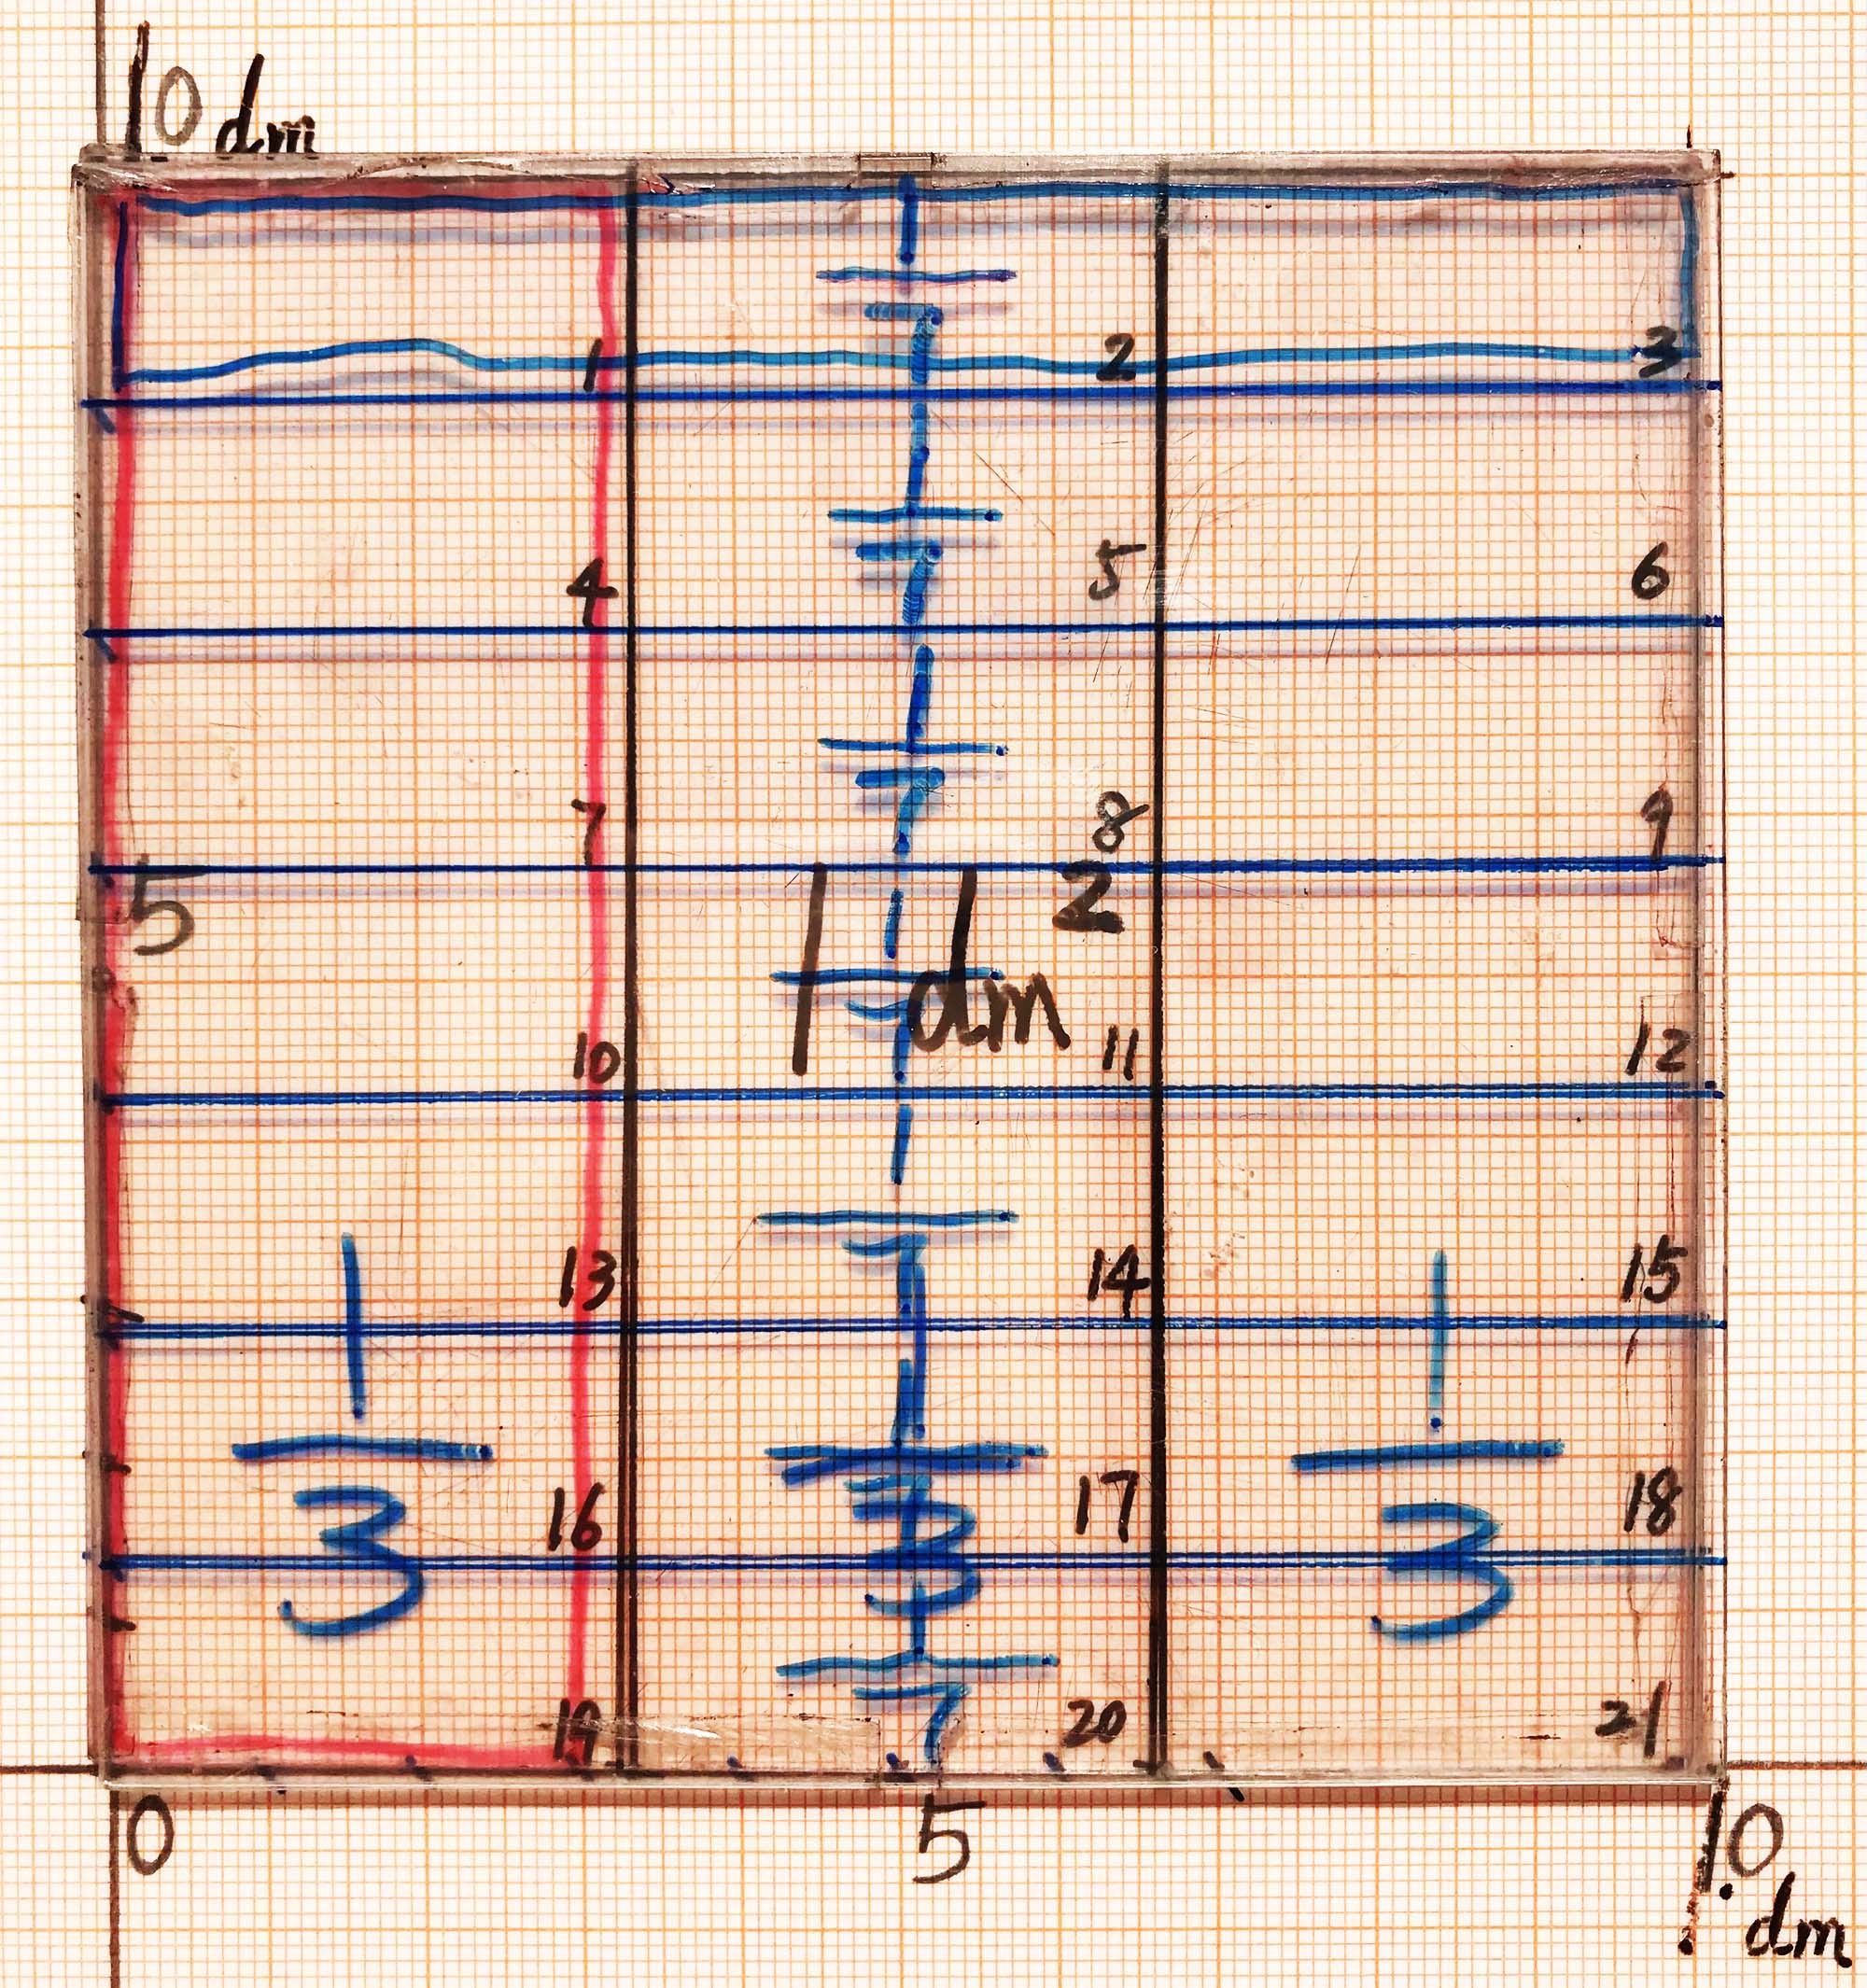 10 dm
1/7
1 2 3
1/7
4 5 6
1/7
7 8 9
5 1 dm2
1/7
10 11 12
1/7
13 14 15
1/3 1/3 1/3
1/7
16 17 18
1/7
19 20 21
0 5 10 dm